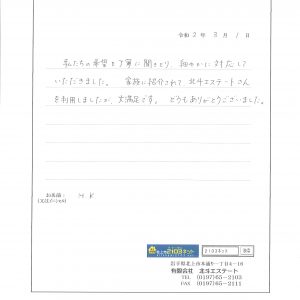 令和 2 年 3 月 1 日
私たちの希望を丁寧に聞きとり、細やかに対応して
いただきました。 家族に紹介されて 北斗エステートさん
を利用しましたが、大満足です。 どうもありがとうございました。
お名前：
(又はイニシャル)
H K
2103ネット
2103ネット 検索
岩手県北上市本通り一丁目4－16
有限会社 北斗エステート
TEL (0197)65－2103
FAX (0197)65－2111